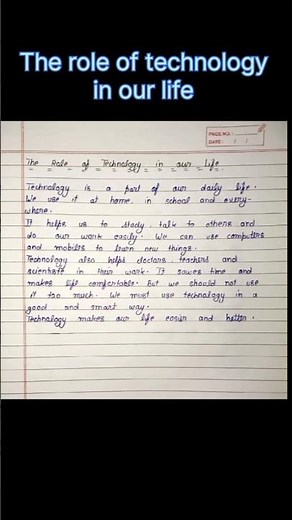 The role of technology
in our life
PAGE NO.:
DATE: / /
The Role of Technology in our Life
Technology is a part of our daily life.
We use it at home, in school and every-
where.
It helps us to study, talk to others and
do our work easily. We can use computers
and mobiles to learn new things.
Technology also helps doctors, teachers and
scientists in their work. It saves time and
makes life comfortable. But we should not use
it too much. We must use technology in a
good and smart way.
Technology makes our life easier and better.